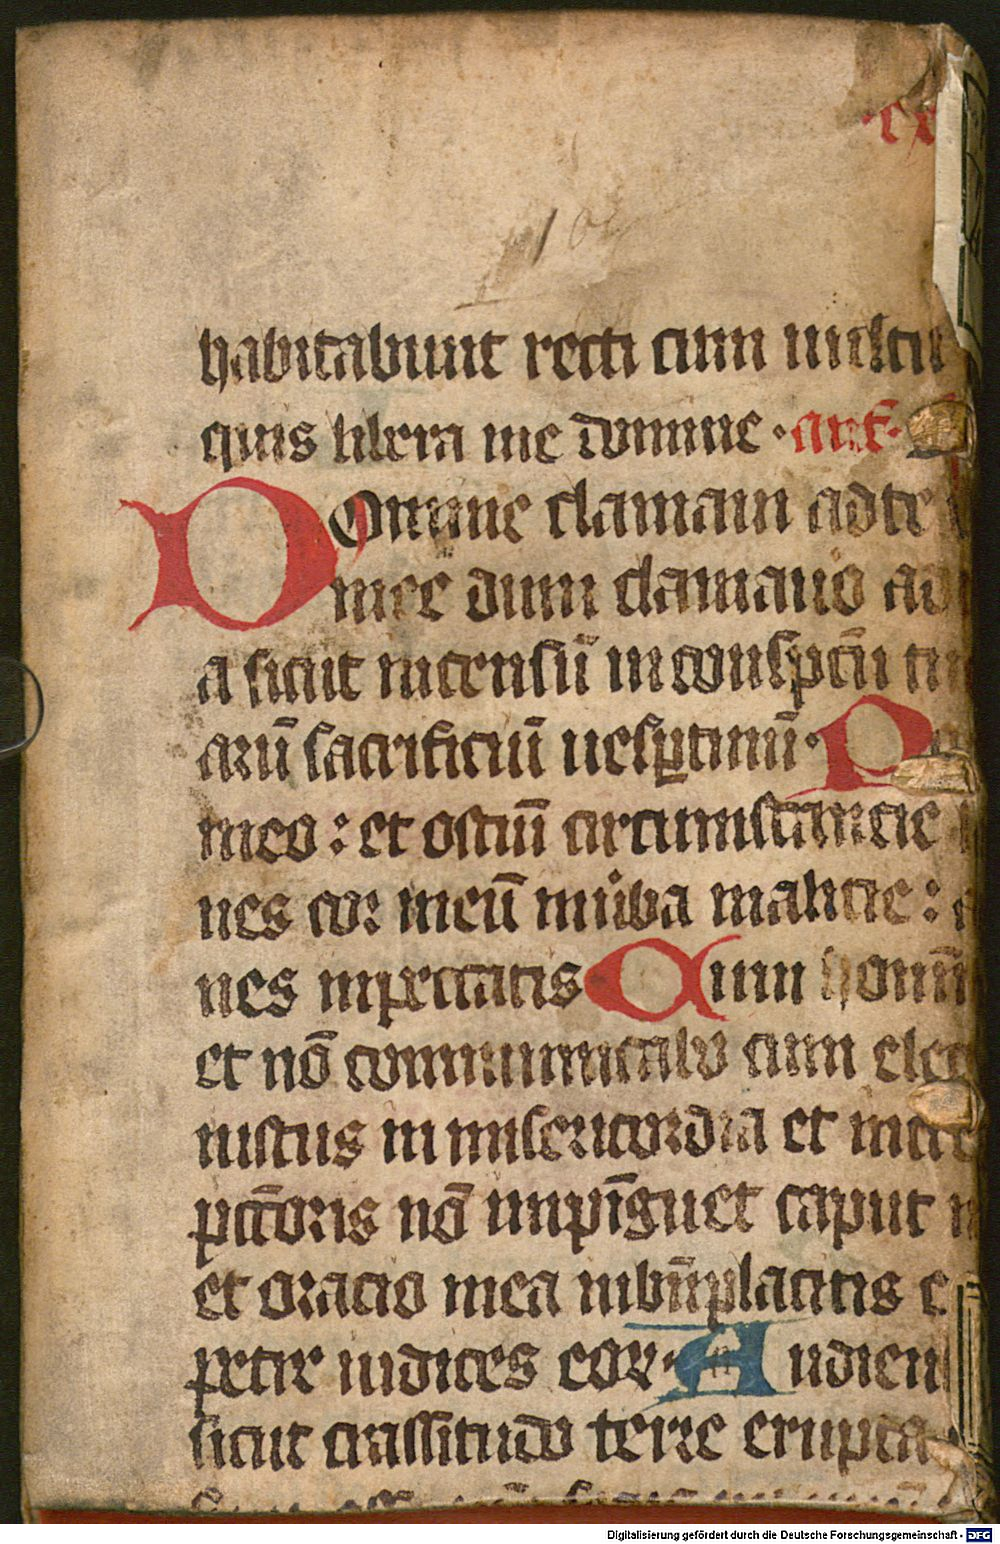 ·cx
habitabunt recti cum uultu
quis libera me domine · ant·
Domine clamaui ad te
mee dum clamauō ad
a sicut incensū in conspc̄u tu
arū sacrificiū uesptinū· P
meo : et ostiū circumstancie
nes cor meū in ūba malicie :
nes in peccatis Cum homi
et nō communicabo cum elec
iustus in misericordia et incre
pcc̄oris nō inpīguet caput m
et oracio mea in bn̄placitis e
petre iudices eor· Audien
sicut crassitudo terre erupta
Digitalisierung gefördert durch die Deutsche Forschungsgemeinschaft - DFG